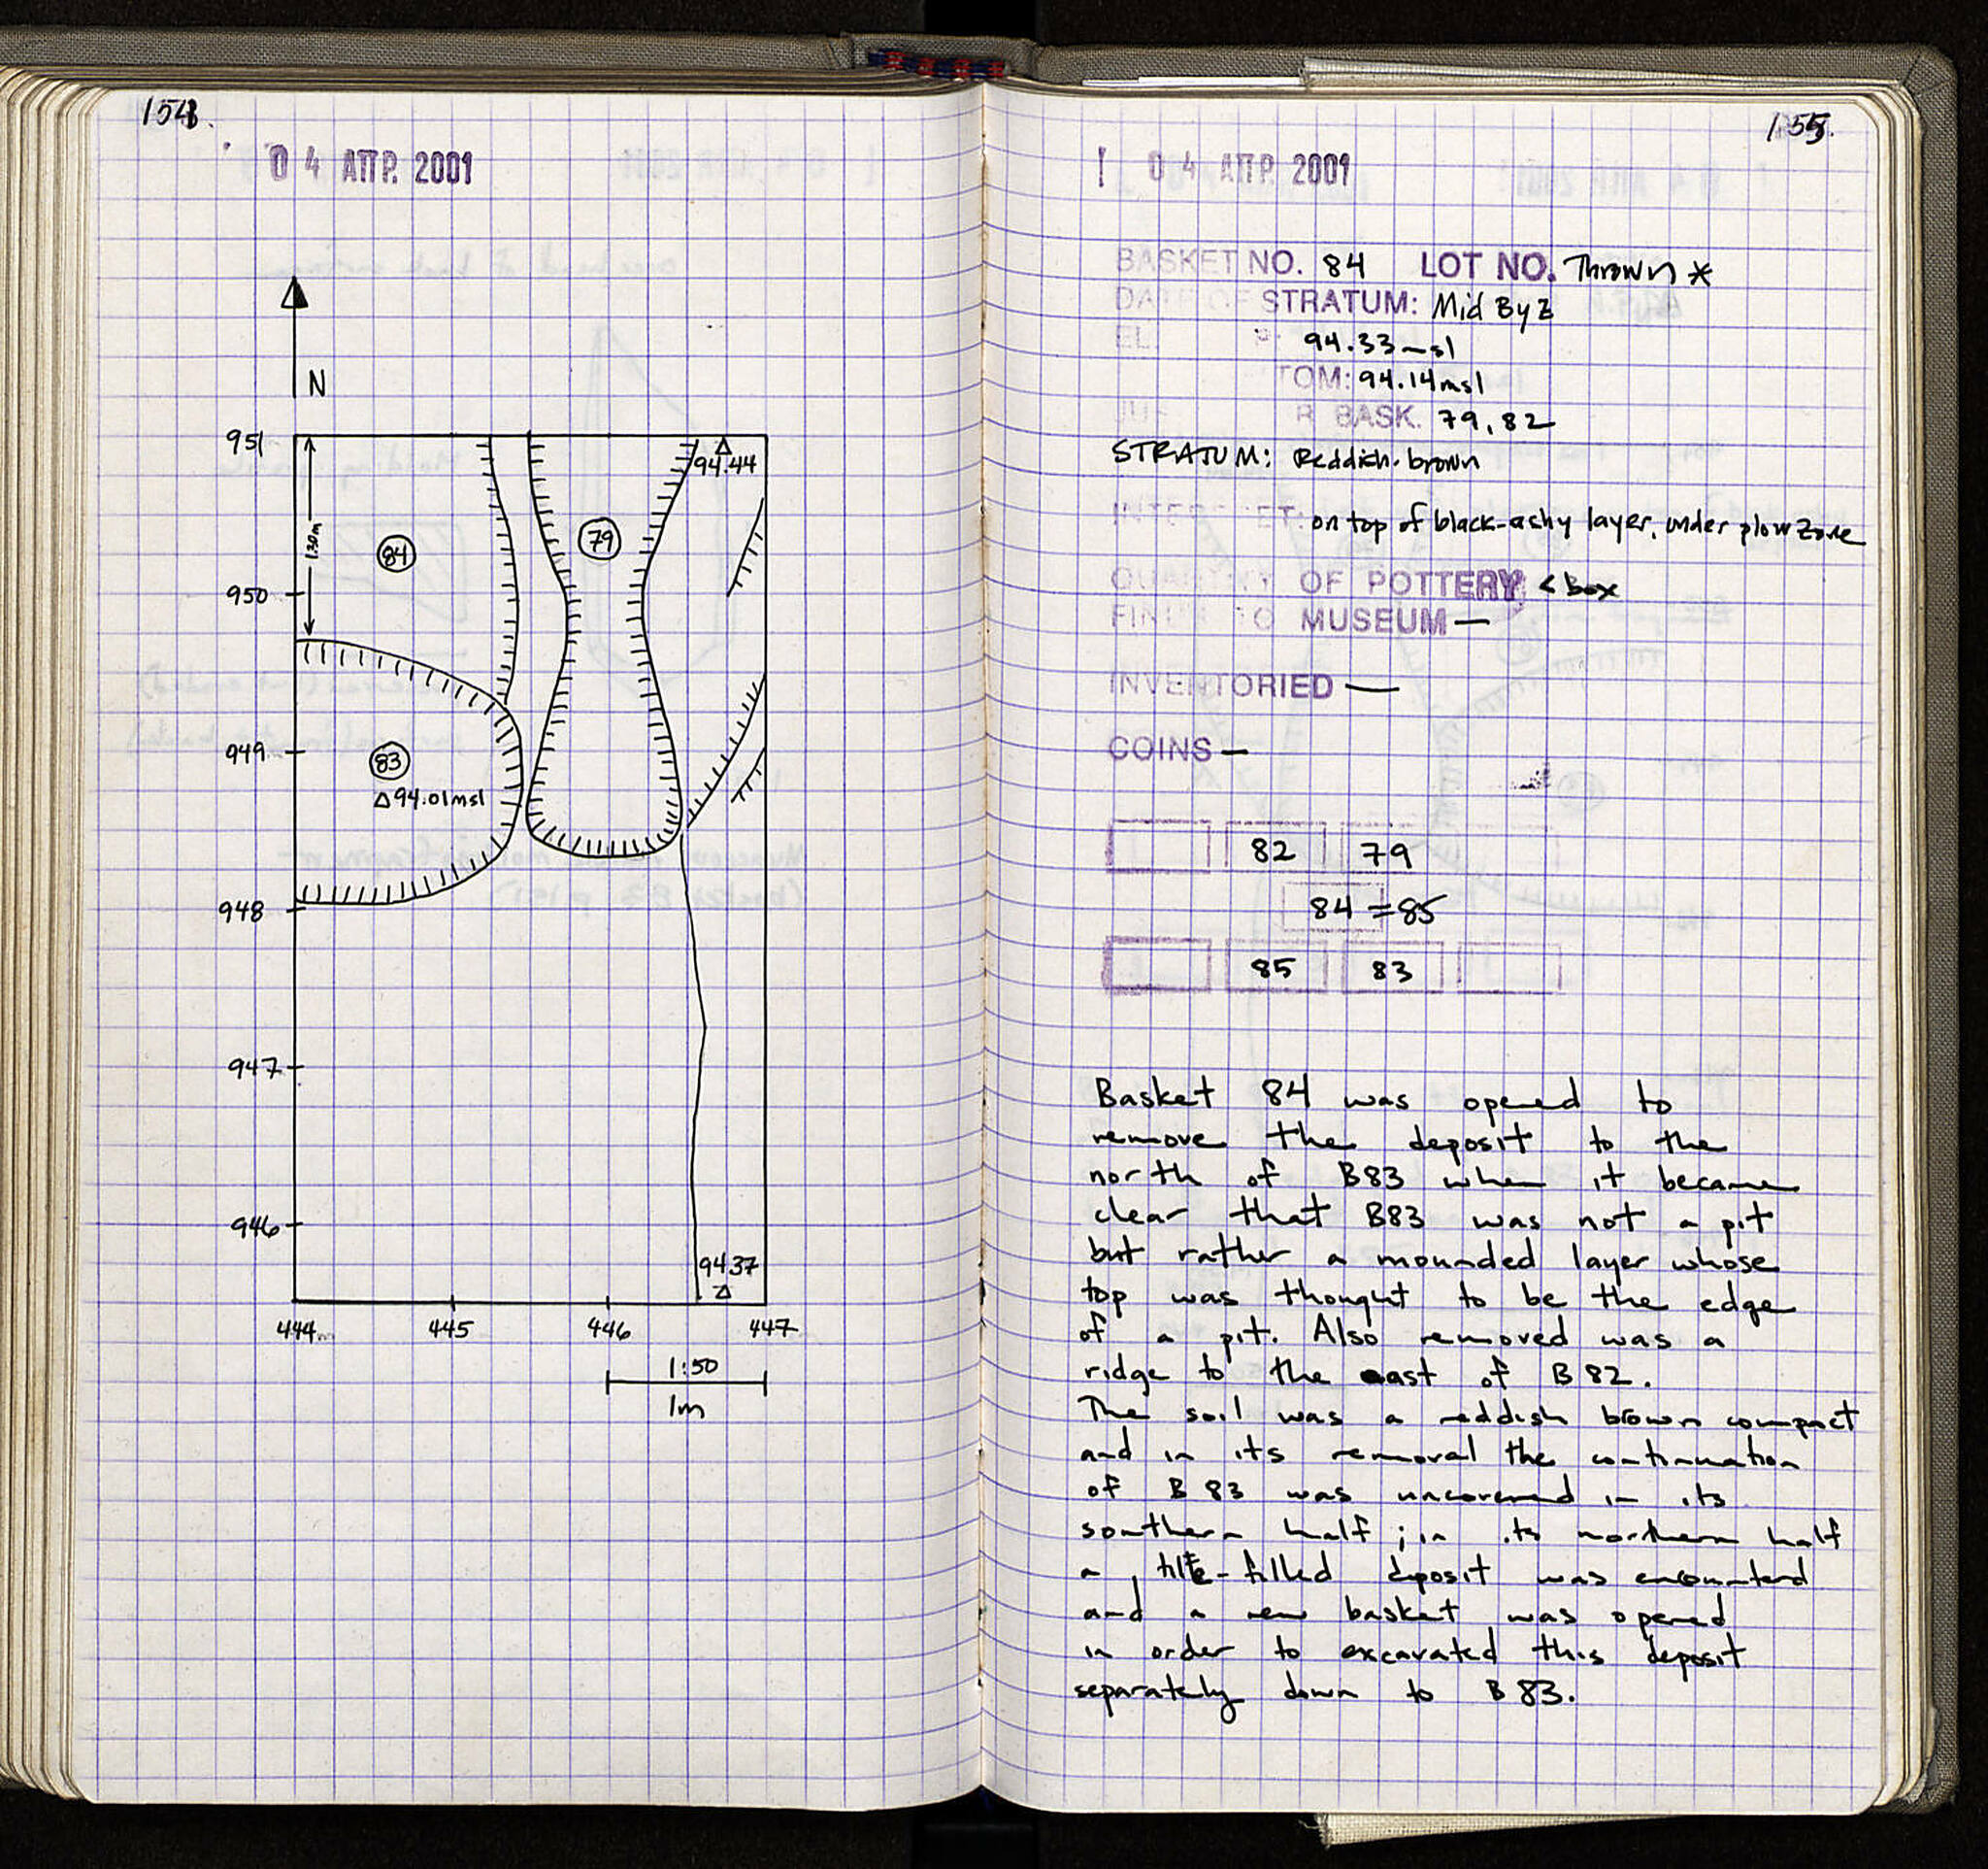 154.
0 4 ΑΠΡ. 2001
N
951
94.44
1.30m
84
79
950
949
83
94.01msl
948
947
946
94.37
444
445
446
447
1:50
1m
155.
0 4 ΑΠΡ. 2001
BASKET NO. 84 LOT NO. Thrown *
DATE OF STRATUM: Mid Byz
EL. P: 94.33msl
TOM: 94.14msl
R BASK. 79, 82
STRATUM: Reddish-brown
INTER ET: on top of black-ashy layer, under plow zone
QUANTITY OF POTTERY < box
FINDS TO MUSEUM —
INVENTORIED —
COINS —
82 79
84 = 85
85 83
Basket 84 was opened to
remove the deposit to the
north of B83 when it became
clear that B83 was not a pit
but rather a mounded layer whose
top was thought to be the edge
of a pit. Also removed was a
ridge to the east of B82.
The soil was a reddish brown compact
and in its removal the continuation
of B83 was uncovered in its
southern half ; in its northern half
a tile-filled deposit was encountered
and a new basket was opened
in order to excavated this deposit
separately down to B83.